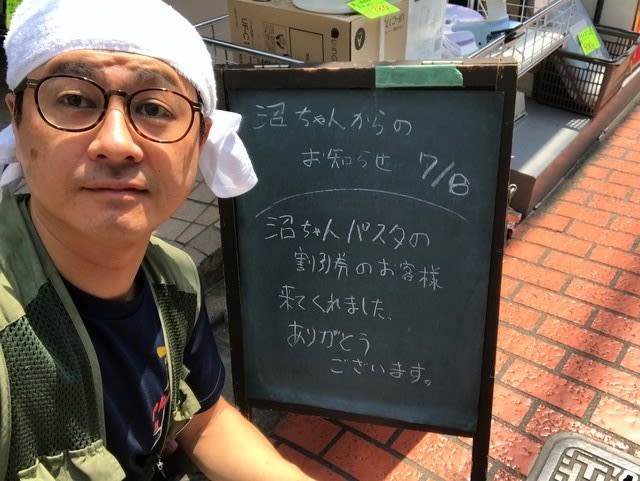 沼ちゃんからの
お知らせ 7/18
沼ちゃんパスタの
割引券のお客様
来てくれました、
ありがとう
ございます。